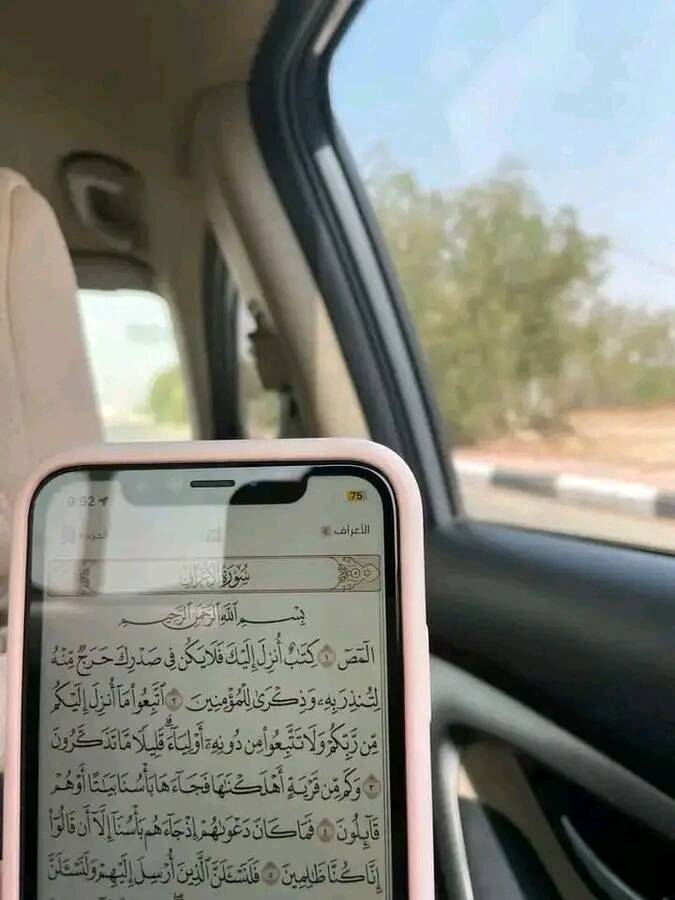 9:52
75
الأعراف
سُورَةُ الأَعْرَافِ
بِسْمِ ٱللَّهِ ٱلرَّحْمَٰنِ ٱلرَّحِيمِ
الٓمٓصٓ ١ كِتَٰبٌ أُنزِلَ إِلَيْكَ فَلَا يَكُن فِى صَدْرِكَ حَرَجٌ مِّنْهُ
لِتُنذِرَ بِهِۦ وَذِكْرَىٰ لِلْمُؤْمِنِينَ ٢ ٱتَّبِعُوا۟ مَآ أُنزِلَ إِلَيْكُم
مِّن رَّبِّكُمْ وَلَا تَتَّبِعُوا۟ مِن دُونِهِۦٓ أَوْلِيَآءَ ۗ قَلِيلًا مَّا تَذَكَّرُونَ
٣ وَكَم مِّن قَرْيَةٍ أَهْلَكْنَٰهَا فَجَآءَهَا بَأْسُنَا بَيَٰتًا أَوْ هُمْ
قَآئِلُونَ ٤ فَمَا كَانَ دَعْوَىٰهُمْ إِذْ جَآءَهُم بَأْسُنَآ إِلَّآ أَن قَالُوٓا۟
إِنَّا كُنَّا ظَٰلِمِينَ ٥ فَلَنَسْـَٔلَنَّ ٱلَّذِينَ أُرْسِلَ إِلَيْهِمْ وَلَنَسْـَٔلَنَّ